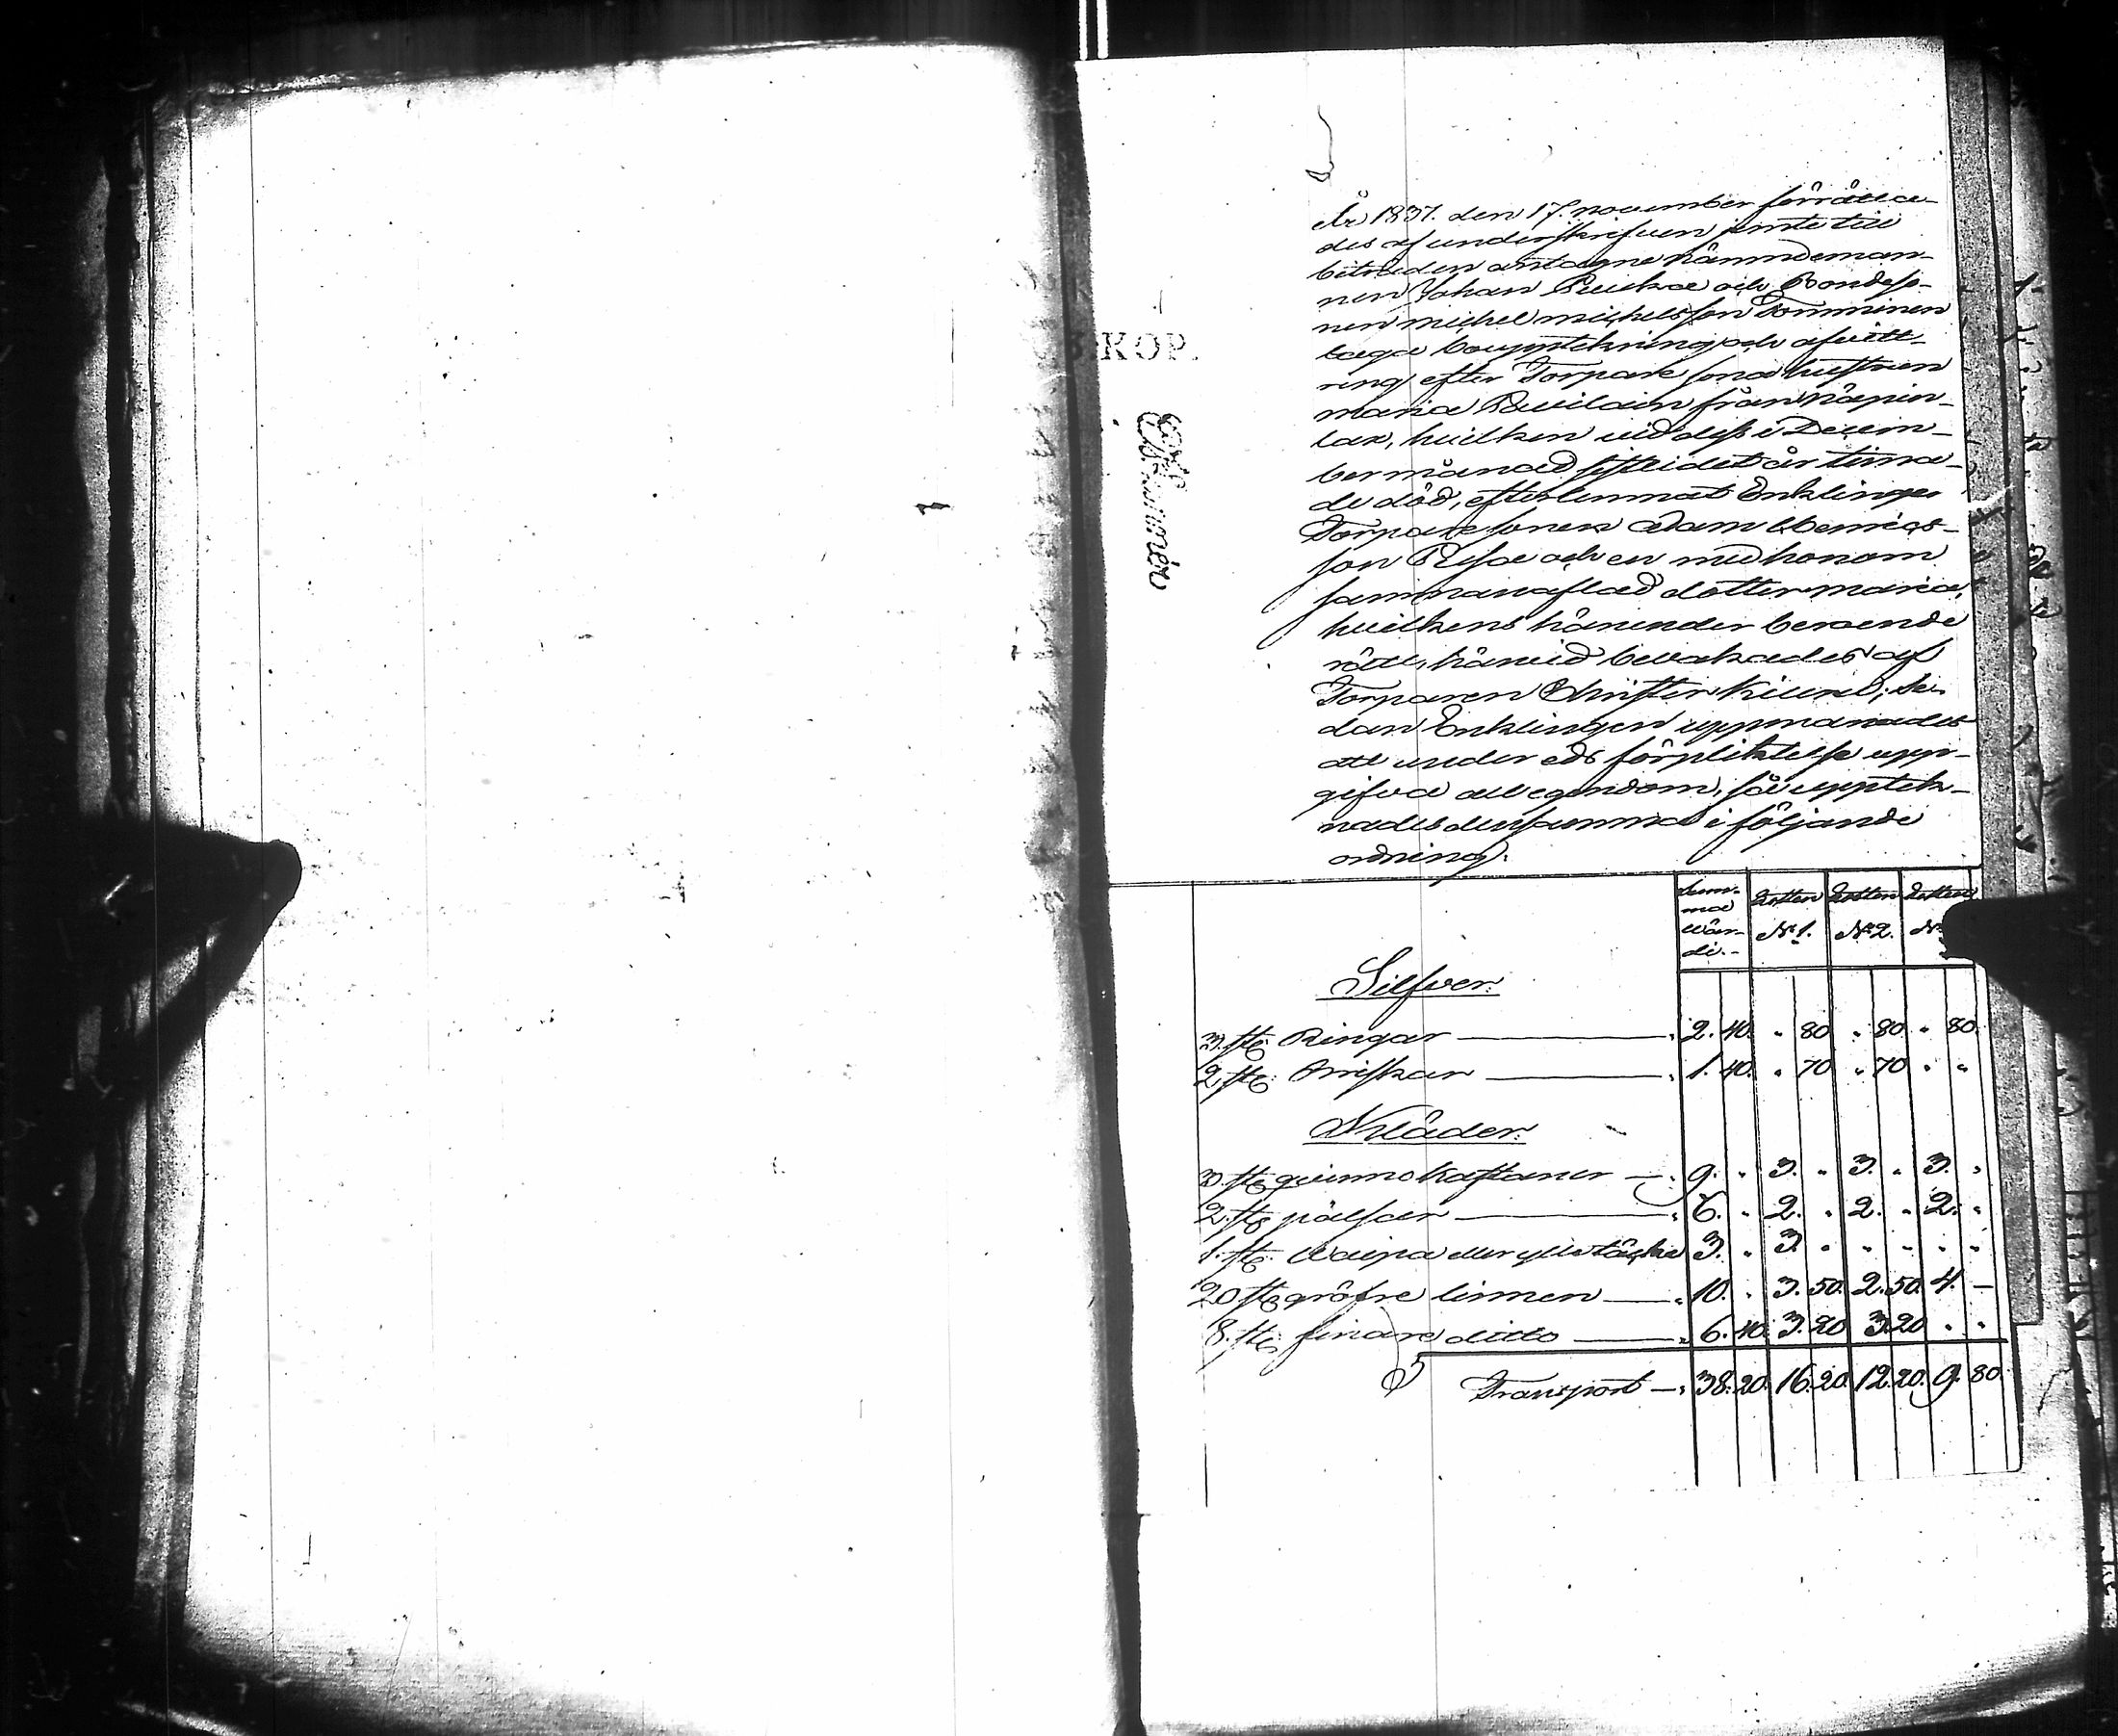 KOP.
År 1837. den 17. november förrätta-
des af underskrifven jemte till
biträden antagne nämndeman-
nen Johan Puukka och Bondeso-
nen michel michelsson Tomminen
laga bouppteckning och afvitt-
ring efter Torpare sona hustrun
maria Pavilain från Näpin-
lax, hvilken vid dess i Decem-
ber månad sistledet år tima-
de död, efterlemnat Enklingen
Torparesonen adam Henrics-
son Risa och en med honom
sammanaflad dotter maria,
hvilkens härunder beroende
rätt, härvid bevakades af
Torparen Christer Kiuru; Se-
dan Enklingen uppmanades
att under eds förpliktelse upp-
gifva all egendom, så upptek-
nades densamma i följande
ordning:
Summa wärde. Lotten N:1. Lotten N:2. Lotten N:
Silfver.
3. st: Ringar — 2. 40. " 80 " 80 " 80.
2. st: Briskar — 1. 40. " 70 " 70 " "
Kläder.
3. st: qvinno kaftaner — 9. " 3. " 3. " 3. "
2. st: pälsar — 6. " 2. " 2. " 2. "
1. st: Waipa eller ylle täcke 3. " 3. " " " " "
20 st: gröfre linnen — 10. " 3. 50. 2. 50. 4. —
8. st: finare ditto — 6. 40. 3. 20 3. 20 " "
Transport — 38. 20. 16. 20. 12. 20. 9. 80.